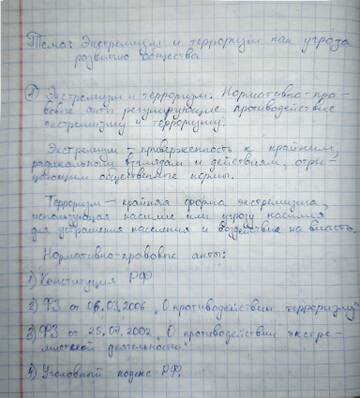 Тема: Экстремизм и терроризм как угроза
развитию общества
① Экстремизм и терроризм. Нормативно-пра-
вовые акты регулирующие противодействие
экстремизму и терроризму.
Экстремизм - приверженность к крайним,
радикальным взглядам и действиям, отри-
цающим общественные нормы.
Терроризм - крайняя форма экстремизма,
использующая насилие или угрозу насилия
для устрашения населения и воздействие на власть.
Нормативно-правовые акты:
1) Конституция РФ
2) ФЗ от 06.03.2006 "О противодействии терроризму"
3) ФЗ от 25.07.2002 "О противодействии экстре-
мистской деятельности"
4) Уголовный кодекс РФ.